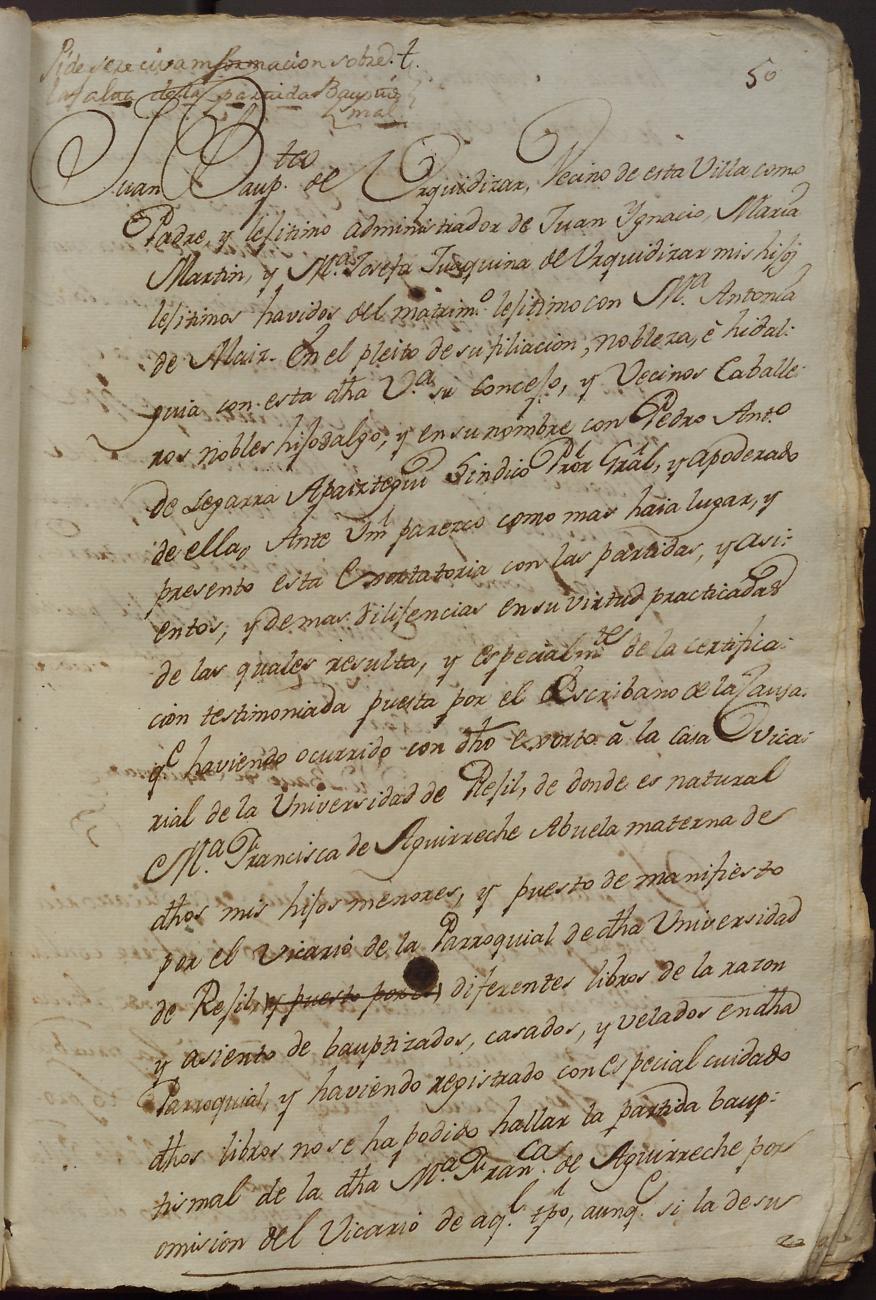 Pide se reciva informacion sobre †.
la falta de la partida Baptis
mal
50
Juan Baup.tta de Urquidizar, Vecino de esta Villa como
Padre, y lesitimo administrador de Juan Ygnacio, Maria
Martin, y M.ª Josefa Juaquina de Urquidizar mis hijos
lesitimos havidos del matrim.º lesitimo con M.ª Antonia
de Alaiz. En el pleito de su filiacion, nobleza, è hidal-
guia con esta dha V.ª su Concejo, y Vecinos Caballe-
ros nobles hijosdalgo, y en su nombre con Pedro Ant.º
de Legarra Apairtegui Sindico Pror Gral, y apoderado
de ella, Ante Vm parezco como mas haia lugar, y
presento esta Exortatoria con las partidas, y asi-
entos, y demas dilisencias en su virtud practicadas
de las quales resulta, y especialm.te de la certifica-
cion testimoniada puesta por el Escribano de la Causa
q.e haviendo ocurrido con dho exorto à la casa Vica-
rial de la Universidad de Resil, de donde es natural
M.ª Francisca de Aguirreche Abuela materna de
dhos mis hijos menores, y puesto de manifiesto
por el Vicario de la Parroquial de dha Universidad
de Resil, (y puesto por el) diferentes libros de la razon
y asiento de bauptizados, casados, y velados en dha
Parroquial, y haviendo registrado con especial cuidado
dhos libros no se ha podido hallar la partida baup-
tismal de la dha M.ª Fran.cas de Aguirreche por
omision del Vicario de aq.l tpo, aunq.e si la de su